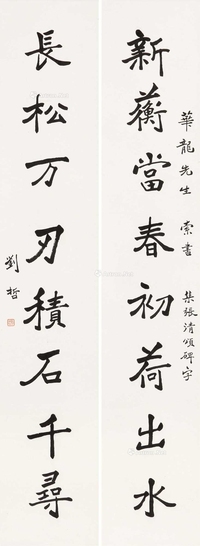 華龍先生 索書 集張清頌碑字
新蘅當春初荷出水
長松万刃積石千尋
劉哲